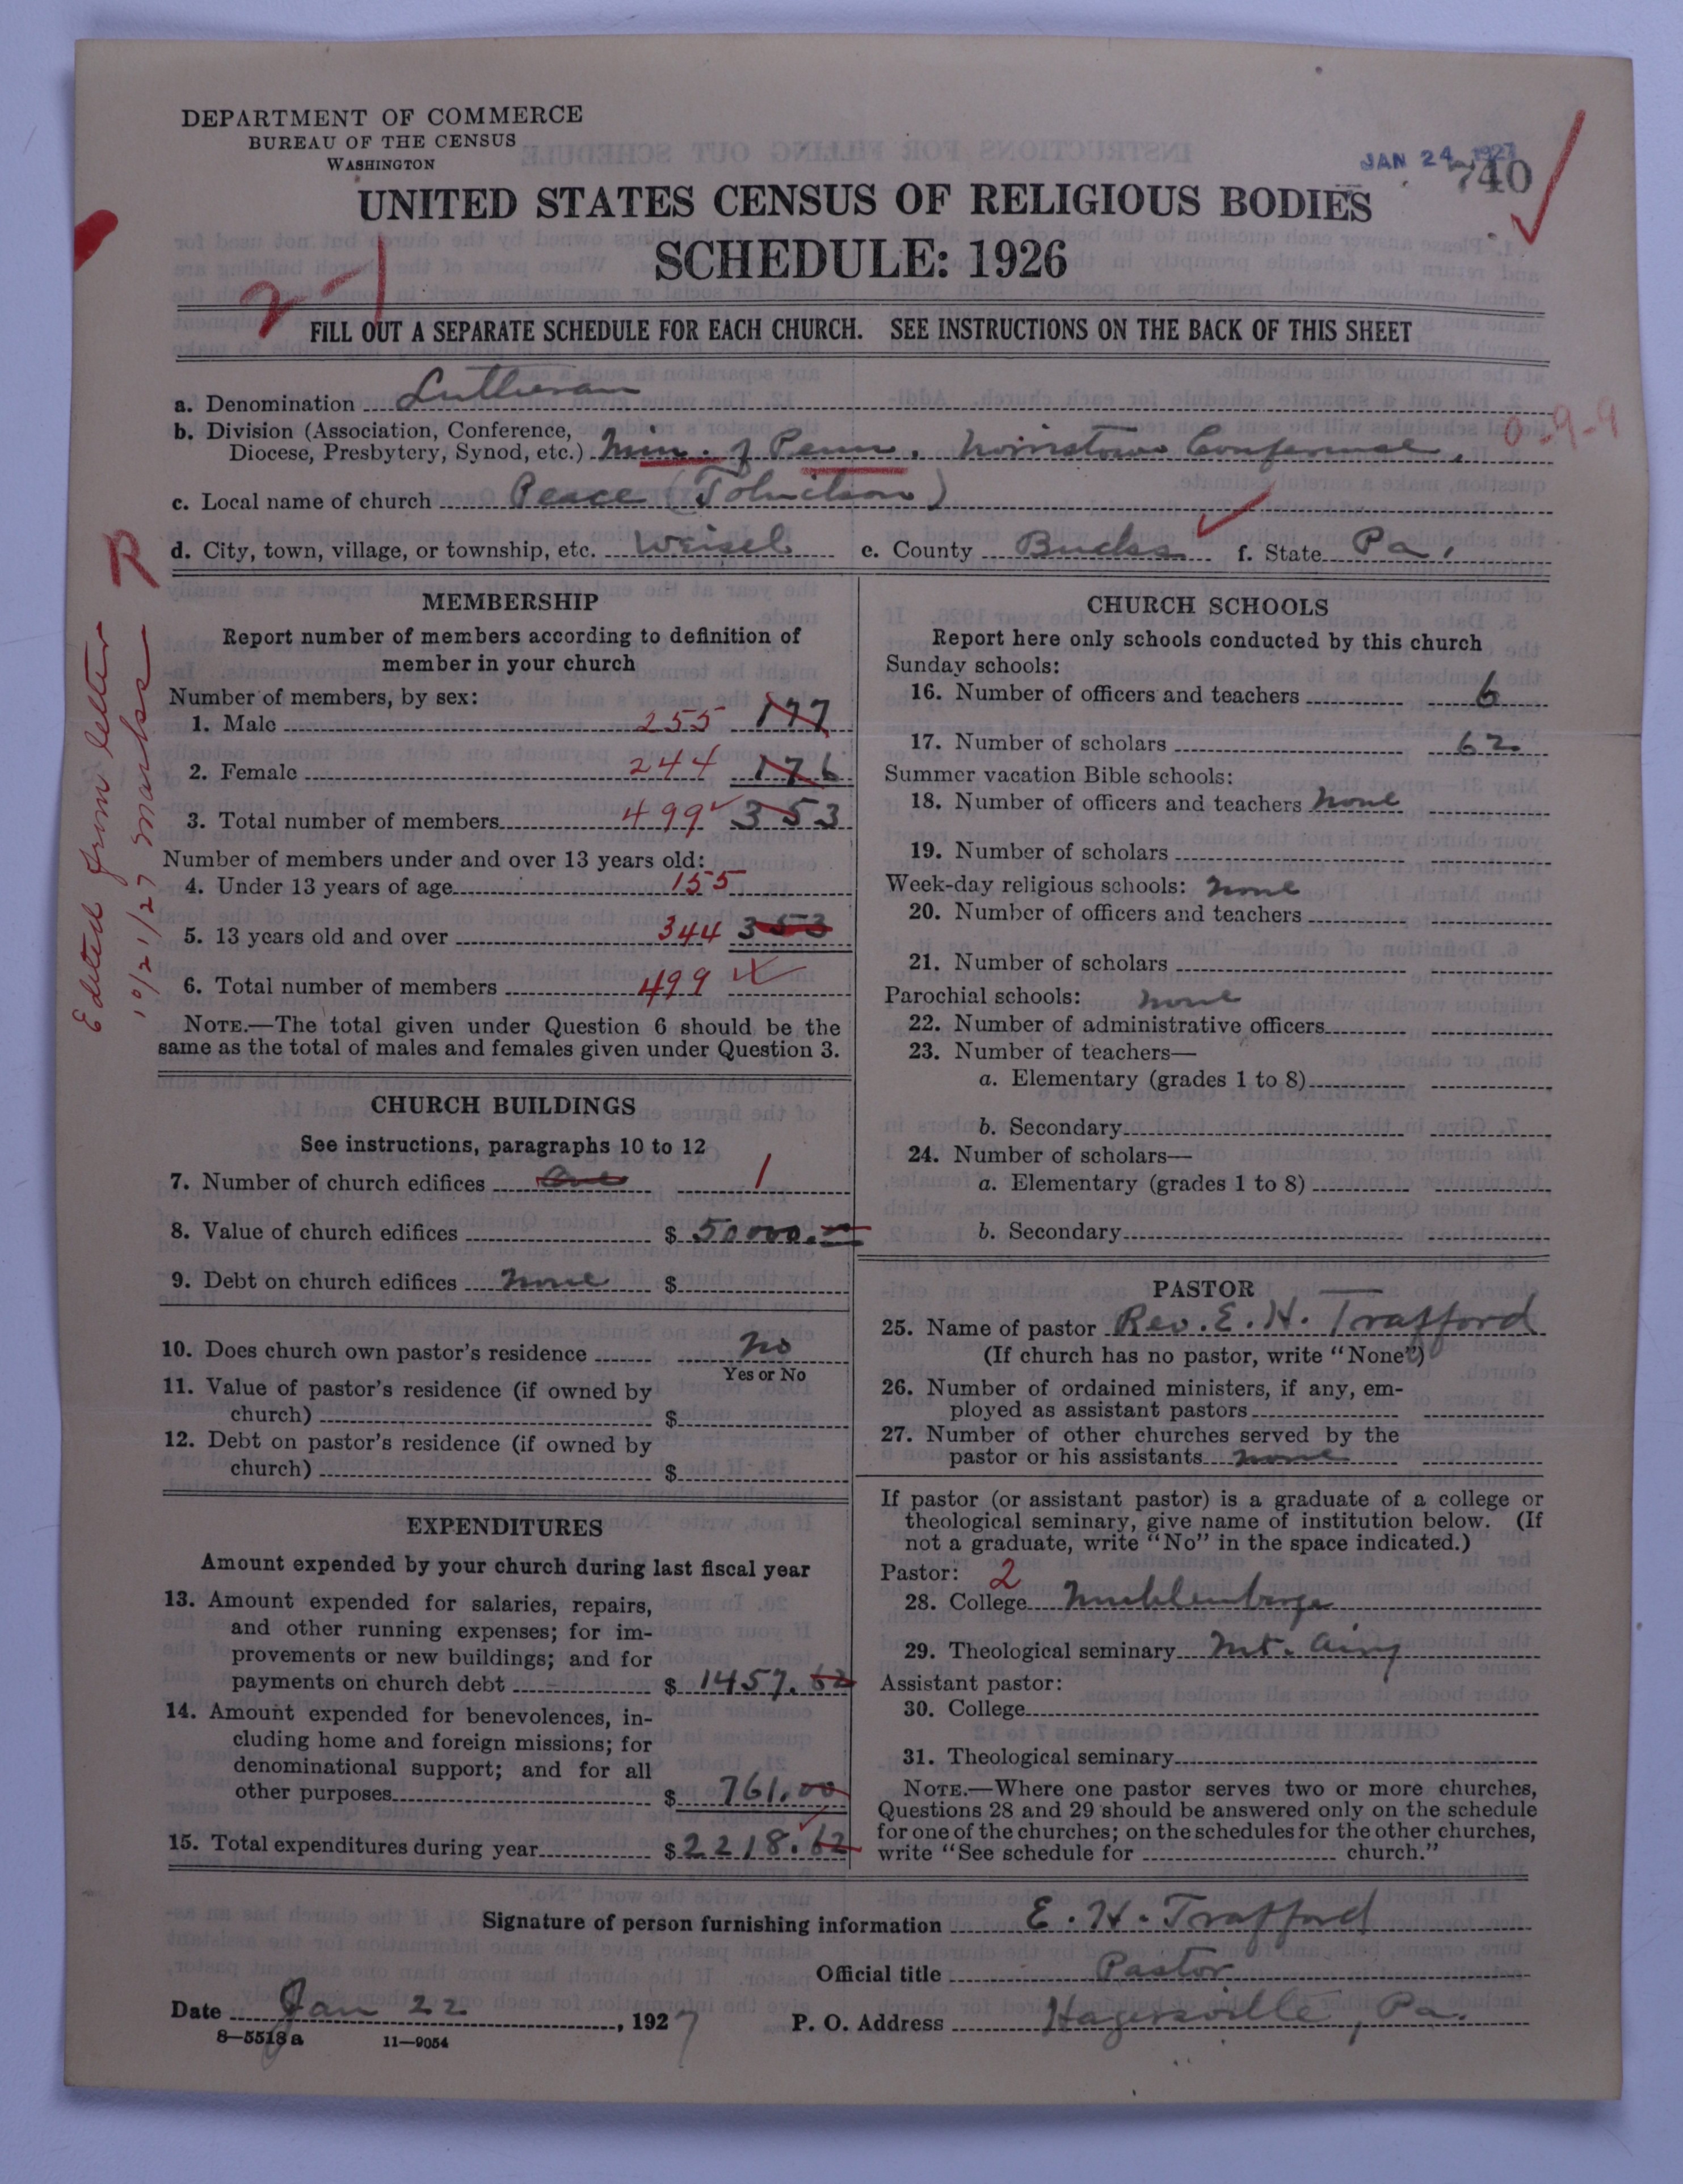 DEPARTMENT OF COMMERCE
BUREAU OF THE CENSUS
WASHINGTON
JAN 24 1927
740
UNITED STATES CENSUS OF RELIGIOUS BODIES
SCHEDULE: 1926
2-1
FILL OUT A SEPARATE SCHEDULE FOR EACH CHURCH. SEE INSTRUCTIONS ON THE BACK OF THIS SHEET
a. Denomination Lutheran
b. Division (Association, Conference,
Diocese, Presbytery, Synod, etc.) Min. of Penn. Norristown Conference.
0-9-9
c. Local name of church Peace (Tohickon)
d. City, town, village, or township, etc. Weisel e. County Bucks f. State Pa.
R
Edited from letter
10/21/27 Marks
MEMBERSHIP
Report number of members according to definition of
member in your church
Number of members, by sex:
1. Male 255 177
2. Female 244 176
3. Total number of members 499 353
Number of members under and over 13 years old:
4. Under 13 years of age 155
5. 13 years old and over 344 353
6. Total number of members 499
NOTE.—The total given under Question 6 should be the
same as the total of males and females given under Question 3.
CHURCH BUILDINGS
See instructions, paragraphs 10 to 12
7. Number of church edifices One 1
8. Value of church edifices $ 50000.
9. Debt on church edifices None $
10. Does church own pastor's residence No
Yes or No
11. Value of pastor's residence (if owned by
church) $
12. Debt on pastor's residence (if owned by
church) $
EXPENDITURES
Amount expended by your church during last fiscal year
13. Amount expended for salaries, repairs,
and other running expenses; for im-
provements or new buildings; and for
payments on church debt $ 1457.62
14. Amount expended for benevolences, in-
cluding home and foreign missions; for
denominational support; and for all
other purposes $ 761.00
15. Total expenditures during year $ 2218.62
CHURCH SCHOOLS
Report here only schools conducted by this church
Sunday schools:
16. Number of officers and teachers 6
17. Number of scholars 62
Summer vacation Bible schools:
18. Number of officers and teachers None
19. Number of scholars
Week-day religious schools: None
20. Number of officers and teachers
21. Number of scholars
Parochial schools: None
22. Number of administrative officers
23. Number of teachers—
a. Elementary (grades 1 to 8)
b. Secondary
24. Number of scholars—
a. Elementary (grades 1 to 8)
b. Secondary
PASTOR
25. Name of pastor Rev. E. H. Trafford
(If church has no pastor, write "None")
26. Number of ordained ministers, if any, em-
ployed as assistant pastors
27. Number of other churches served by the
pastor or his assistants None
If pastor (or assistant pastor) is a graduate of a college or
theological seminary, give name of institution below. (If
not a graduate, write "No" in the space indicated.)
Pastor: 2
28. College Muhlenberg
29. Theological seminary Mt. Airy
Assistant pastor:
30. College
31. Theological seminary
NOTE.—Where one pastor serves two or more churches,
Questions 28 and 29 should be answered only on the schedule
for one of the churches; on the schedules for the other churches,
write "See schedule for church."
Signature of person furnishing information E. H. Trafford
Official title Pastor
Date Jan 22, 1927 P. O. Address Hagersville, Pa.
8—5518a 11—9054